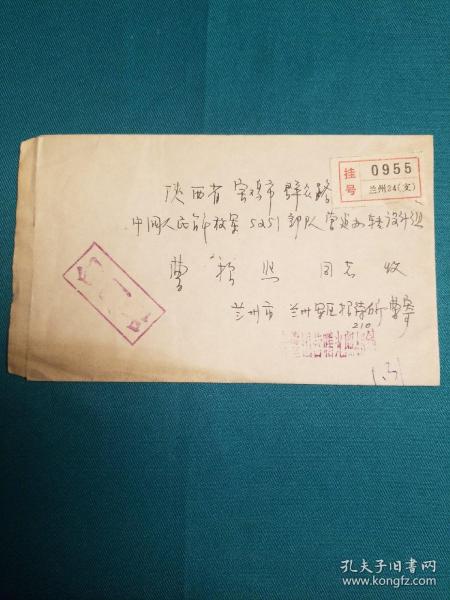 挂号 0955
兰州24(支)
陕西省宝鸡市群众路
中国人民解放军5251部队营建办转设计组
曹 照 同志 收
兰州市 兰州军区招待所曹寄
210
1.31
孔夫子旧书网
www.kongfz.com